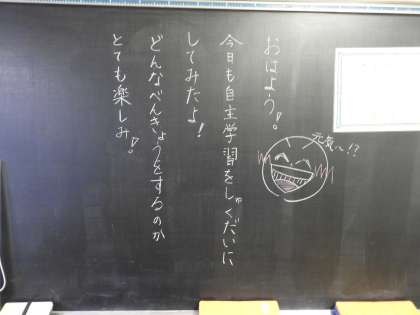 おはよう!
元気〜!?
今日も自主学習をしゅくだいに
してみたよ!
どんなべんきょうをするのか
とても楽しみ!